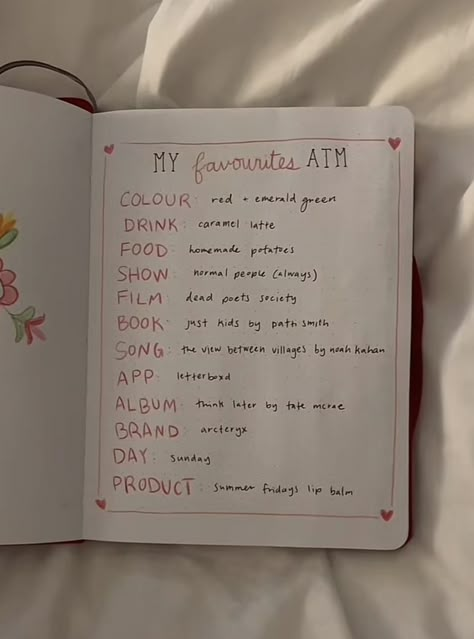 MY favourites ATM
COLOUR: red + emerald green
DRINK: caramel latte
FOOD: homemade potatoes
SHOW: normal people (always)
FILM: dead poets society
BOOK: just kids by patti smith
SONG: the view between villages by noah kahan
APP: letterboxd
ALBUM: think later by tate mcrae
BRAND: arcteryx
DAY: sunday
PRODUCT: summer fridays lip balm